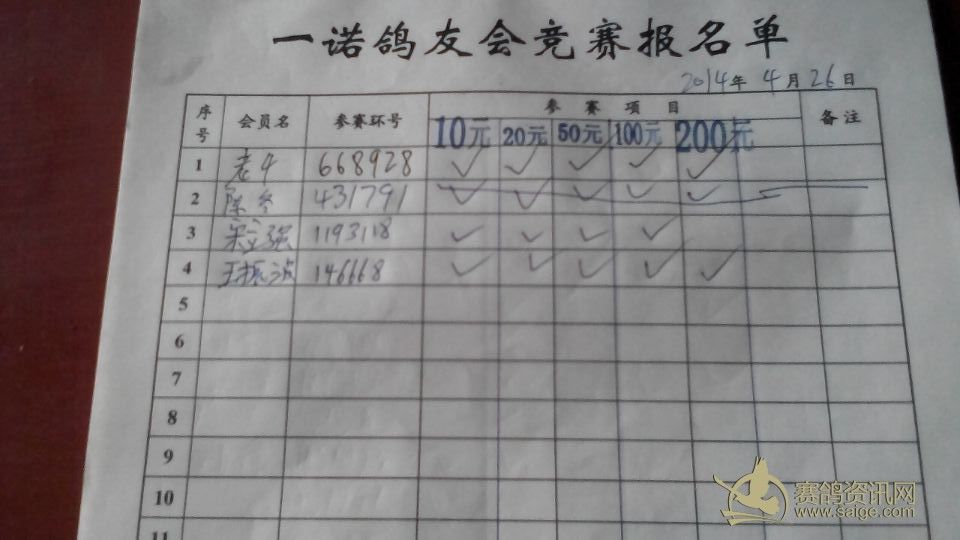 一诺鸽友会竞赛报名单
2014年 4月 26日
序号 会员名 参赛环号 参赛项目 备注
10元 20元 50元 100元 200元
1 老牛 668928 ✓ ✓ ✓ ✓ ✓
2 431791 ✓ ✓ ✓ ✓ ✓
3 宋立强 1193118 ✓ ✓ ✓ ✓
4 王振波 146668 ✓ ✓ ✓ ✓ ✓
5
6
7
8
9
10
11
赛鸽资讯网
www.saige.com